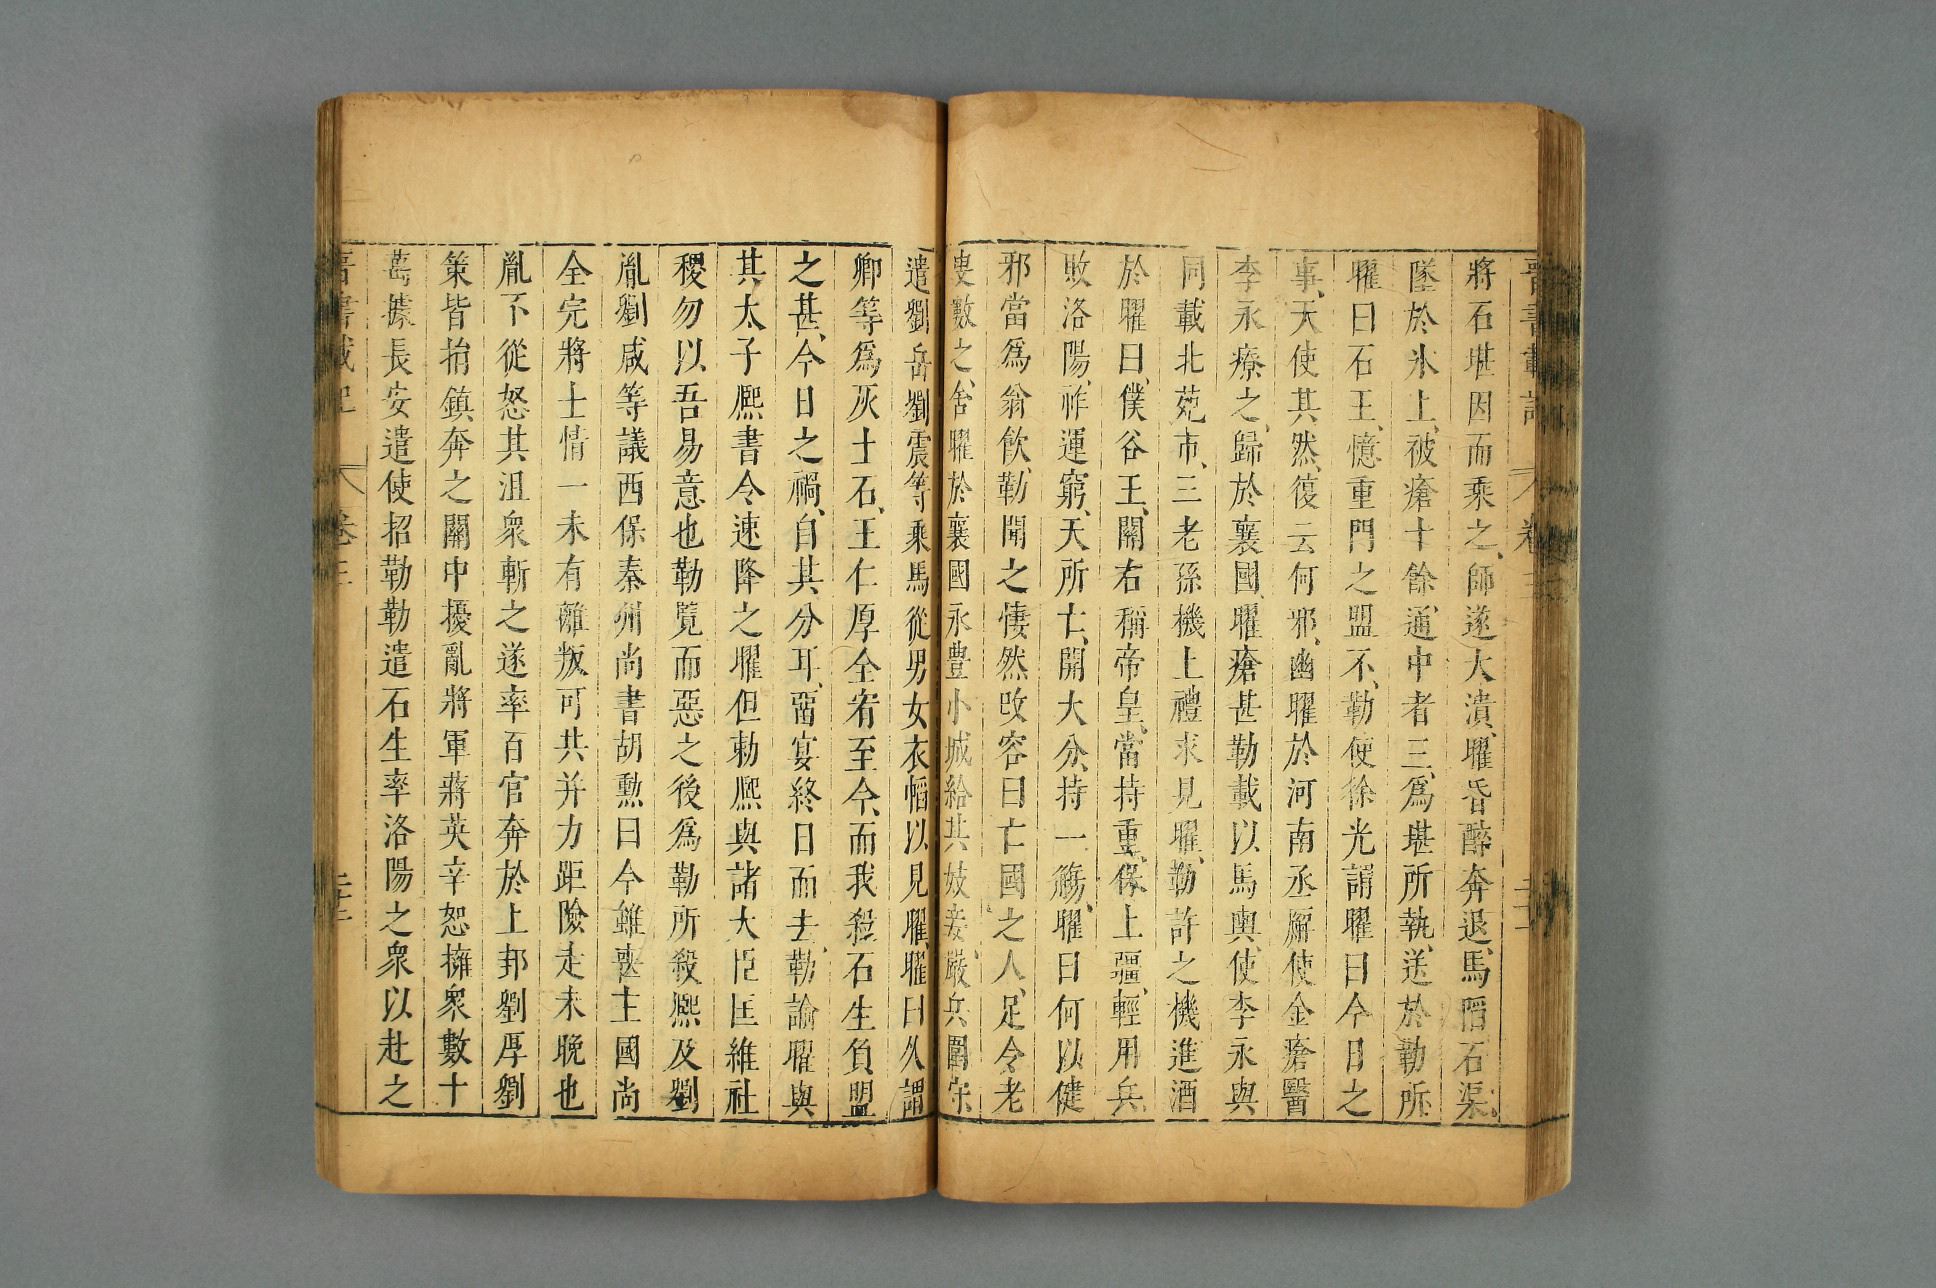 晉書載記 卷三
將石堪因而乘之師遂大潰曜昏醉奔退馬陷石渠
墜於氷上被瘡十餘通中者三爲堪所執送於勒所
曜曰石王憶重門之盟不勒使徐光謂曜曰今日之
事天使其然復云何邪幽曜於河南丞廨使金瘡醫
李永療之歸於襄國曜瘡甚勒載以馬輿使李永與
同載北苑市三老孫機上禮求見曜勒許之機進酒
於曜曰僕谷王關右稱帝皇當持重保土疆輕用兵
敗洛陽祚運窮天所亡開大分持一觴曜曰何以健
邪當爲翁飲勒聞之悽然改容曰亡國之人足令老
叟數之舍曜於襄國永豐小城給其妓妾嚴兵圍守
遣劉岳劉震等乘馬從男女衣幍以見曜曜曰久謂
卿等爲灰土石王仁厚全宥至今而我殺石生負盟
之甚今日之禍自其分耳畱宴終日而去勒諭曜與
其太子熈書令速降之曜但勅熈與諸大臣匡維社
稷勿以吾易意也勒覽而惡之後爲勒所殺熈及劉
胤劉咸等議西保秦州尚書胡勲曰今雖喪主國尚
全完將士情一未有離叛可共并力距險走未晚也
胤不從怒其沮衆斬之遂率百官奔於上邽劉厚劉
策皆捐鎮奔之關中擾亂將軍蔣英辛恕擁衆數十
萬據長安遣使招勒勒遣石生率洛陽之衆以赴之
晉書載記 卷三